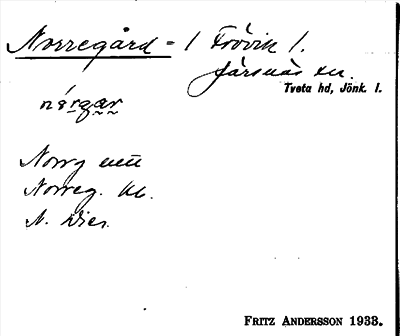 Norregård = / Frövik /.
Järsnäs sn.
Tveta hd, Jönk. l.
nórgar
Norrg
Norreg.
N.
FRITZ ANDERSSON 1933.